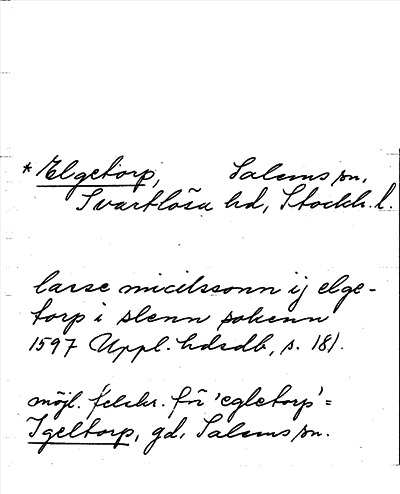 *Elgetorp, Salems sn,
Svartlösa hd, Stockh. l.
larse micilssonn ij elge-
torp i slenn sokenn
1597 Uppl. hdsdb, s. 181.
möjl. felskr. för 'egletorp' =
Igeltorp, gd, Salems sn.